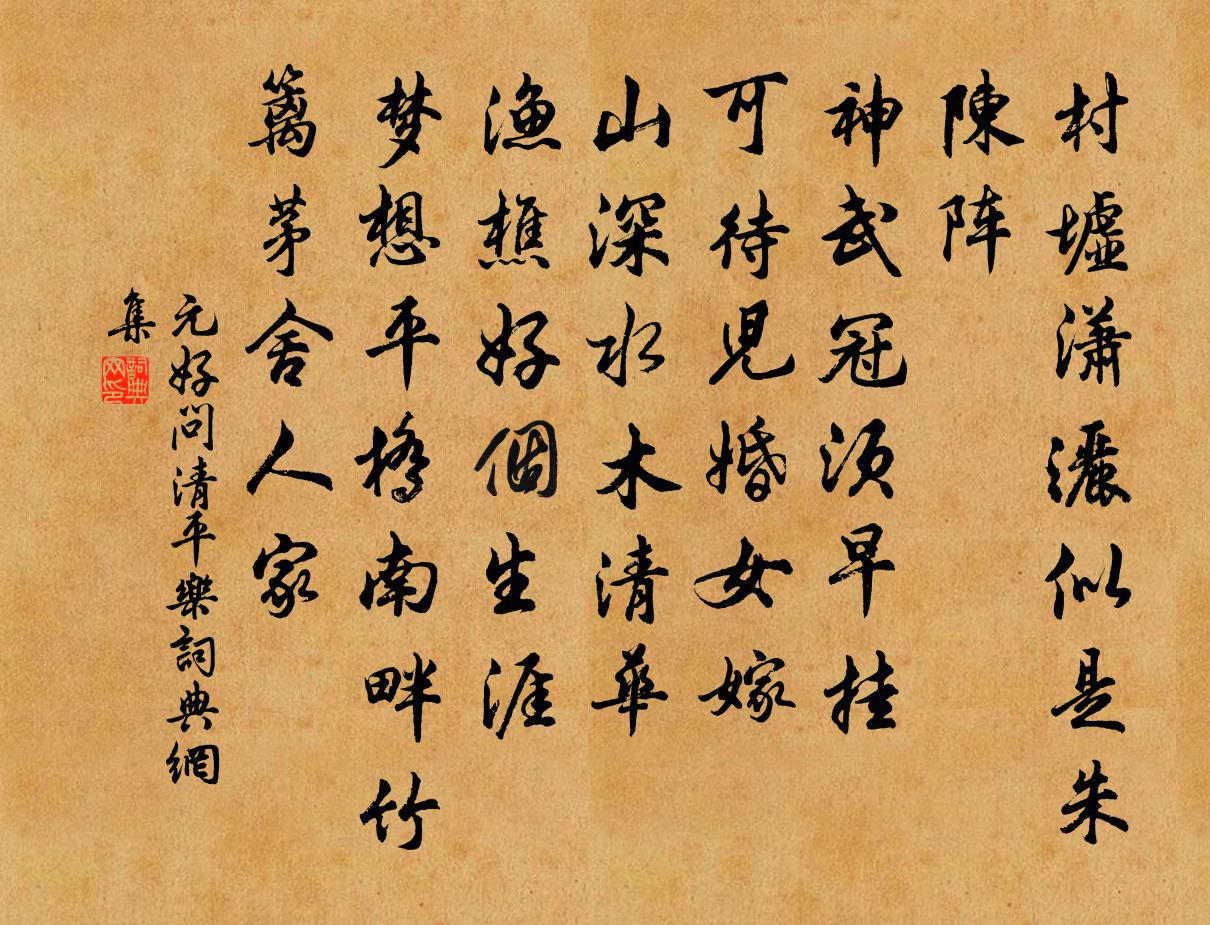 村墟瀟灑似是朱
陳陣
神武冠须早挂
可待児婚女嫁
山深水木清華
漁樵好個生涯
梦想平橋南畔竹
籬茅舍人家
元好问清平樂詞典網
集
詞典网印